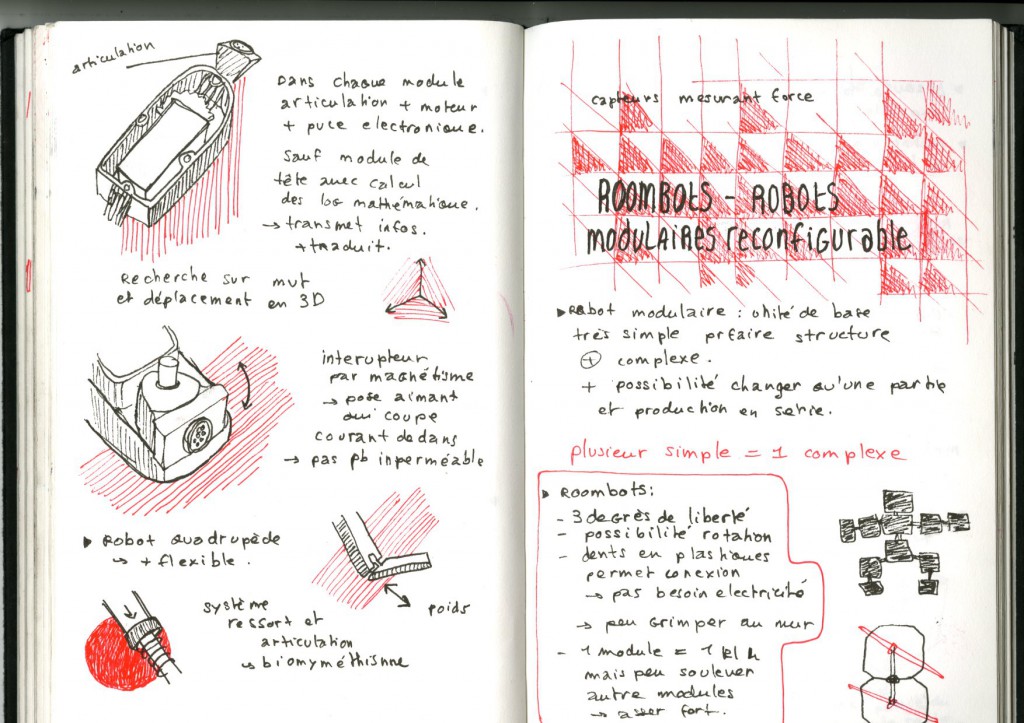 articulation
Dans chaque module
articulation + moteur
+ puce electronique.
Sauf module de
tête avec calcul
des log mathématique.
→ transmet infos.
+ traduit.
Recherche sur mut
et déplacement en 3D
interupteur
par magnétisme
→ pose aimant
qui coupe
courant dedans
→ pas pb inperméable
▶ Robot quadrupède
↪ + flexible.
poids
système
ressort et
articulation
↪ biomyméthisne
capteurs mesurant force
ROOMBOTS - ROBOTS
MODULAIRES reconfigurable
▶ Robot modulaire : unité de base
très simple pr faire structure
⊕ complexe.
+ possibilité changer qu'une partie
et production en serie.
plusieur simple = 1 complexe
▶ Roombots:
- 3 degrès de liberté
- possibilité rotation
- dents en plastiques
permet conexion
→ pas besoin electricité
→ peu Grimper au mur
- 1 module = 1
mais peu soulever
autre modules
→ asser fort.